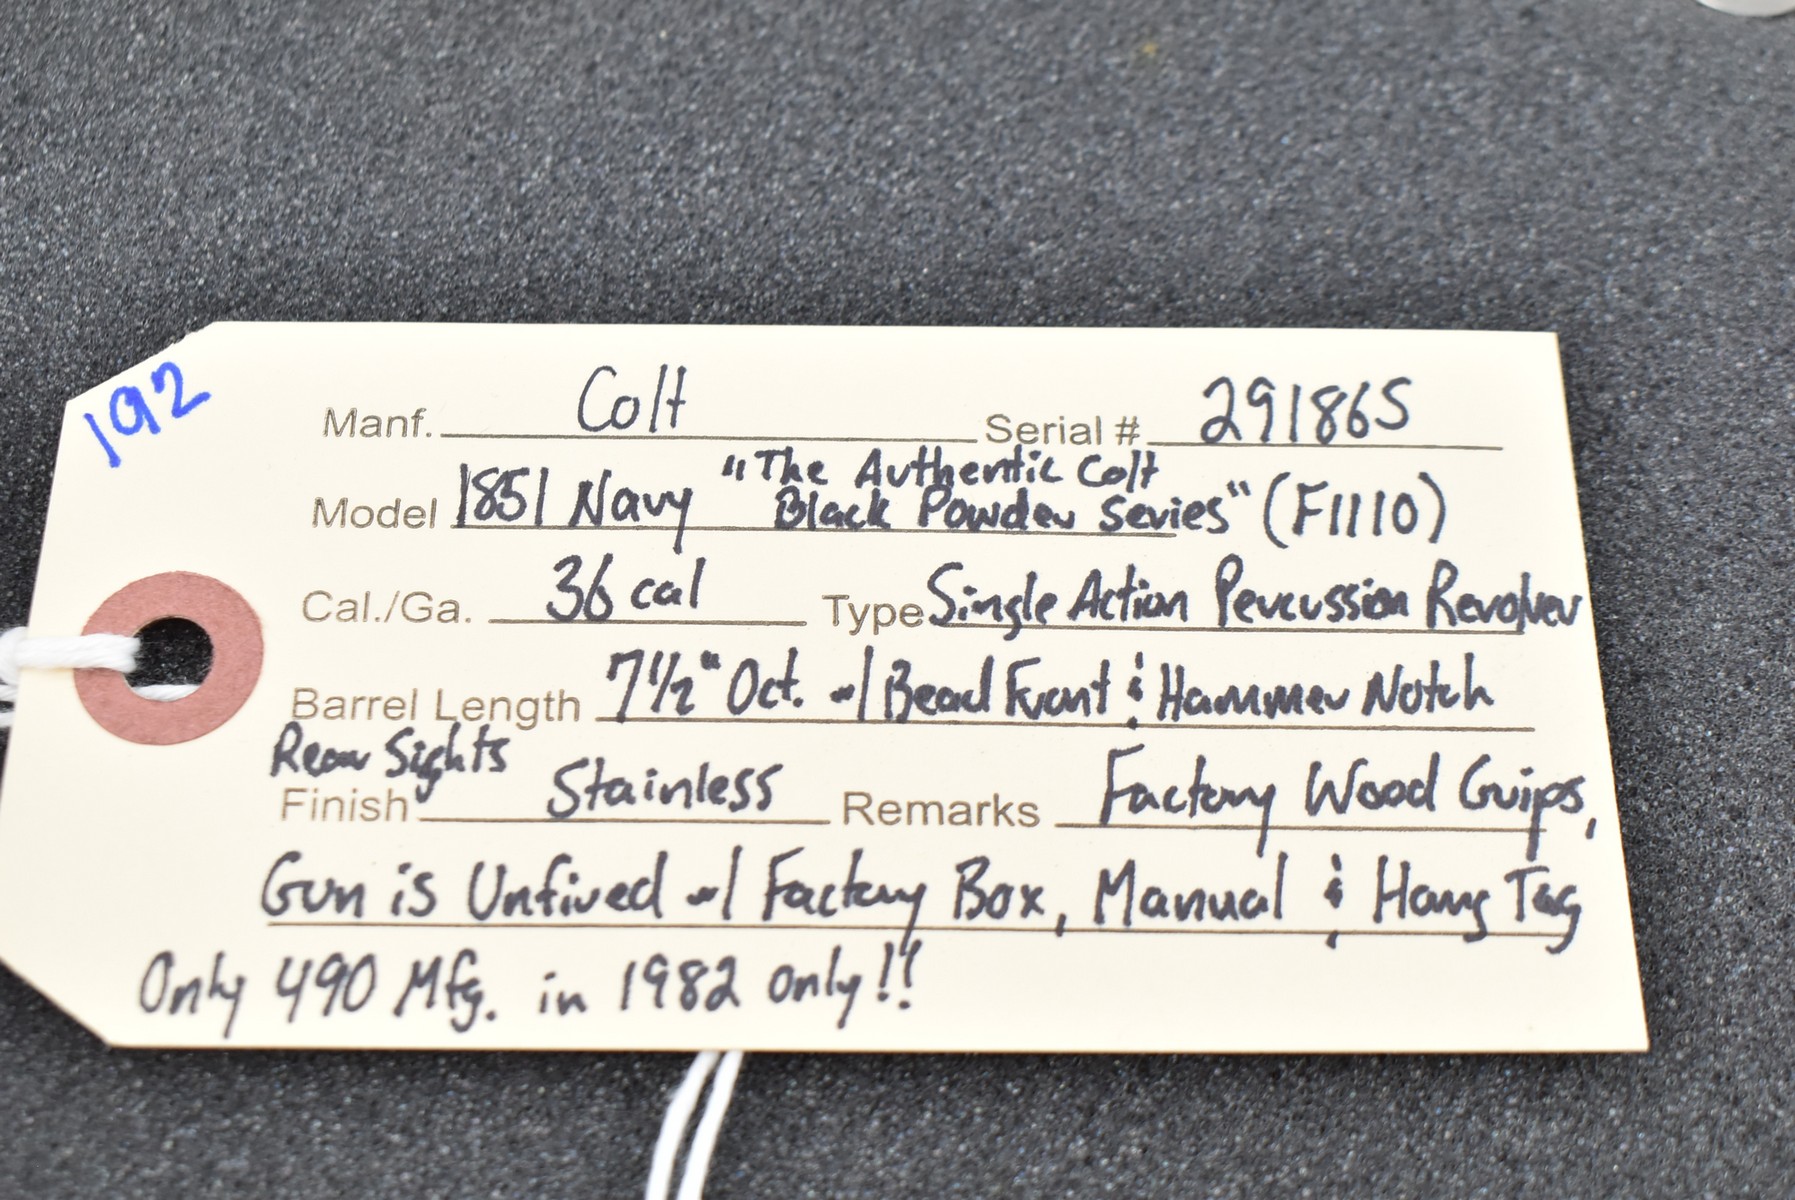 192
Manf. Colt Serial # 29186S
Model 1851 Navy "The Authentic Colt
Black Powder Series" (F1110)
Cal./Ga. 36 cal Type Single Action Percussion Revolver
Barrel Length 7 1/2" Oct. w/ Bead Front & Hammer Notch
Rear Sights
Finish Stainless Remarks Factory Wood Grips,
Gun is Unfired w/ Factory Box, Manual & Hang Tag
Only 490 Mfg. in 1982 only!!